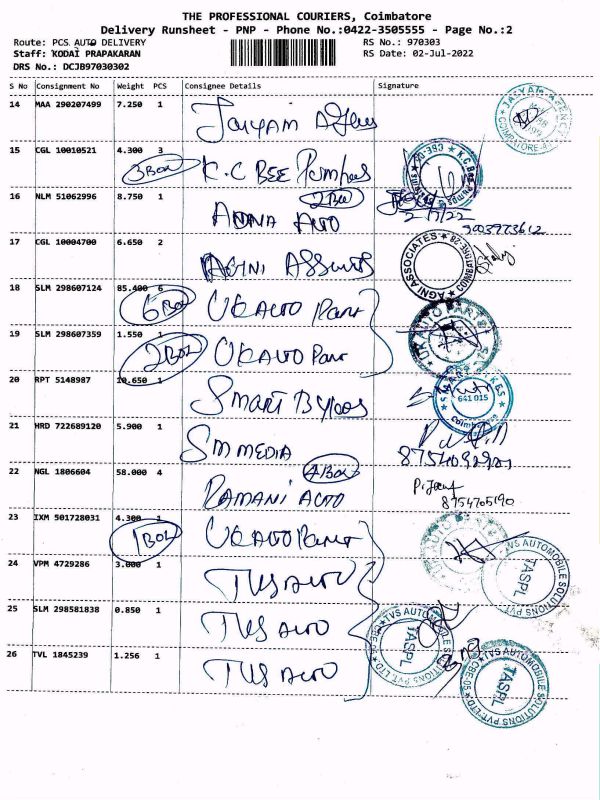 THE PROFESSIONAL COURIERS, Coimbatore
Delivery Runsheet - PNP - Phone No.:0422-3505555 - Page No.:2
Route: PCS AUTO DELIVERY RS No.: 970303
Staff: KODAI PRAPAKARAN RS Date: 02-Jul-2022
DRS No.: DCJB97030302
S No Consignment No Weight PCS Consignee Details Signature
14 MAA 290207499 7.250 1 Jaiyam
JAIYAM AGENC
COIMBATORE
15 CGL 10010521 4.300 3 3 Box K.C BEE Pumps
K.C. Bee Pumps
16 NLM 51062996 8.750 1 2 Box
AUTO 2/7/22
17 CGL 10004700 6.650 2 AGNI
AGNI ASSOCIATES
18 SLM 298607124 85.400 6 6 Box UK AUTO Part
19 SLM 298607359 1.550 1 2 Box UK AUTO Part
UK AUTO PARTS
20 RPT 5148987 10.650 1 Smart
641 015
Coimbatore
21 HRD 722689120 5.900 1 SM MEDIA
22 NGL 1806604 58.000 4 4 Box RAMANI AUTO
8754705190
23 IXM 501728031 4.300 1 1 Box UK AUTO Part
24 VPM 4729286 3.000 1 TVS AUTO
TVS AUTOMOBILE SOLUTIONS PVT. LTD
TASPL
25 SLM 298581838 0.850 1 TVS AUTO
TVS AUTOMOBILE SOLUTIONS PVT. LTD
TASPL
26 TVL 1845239 1.256 1 TVS AUTO
TVS AUTOMOBILE SOLUTIONS PVT. LTD CBE-05
TASPL